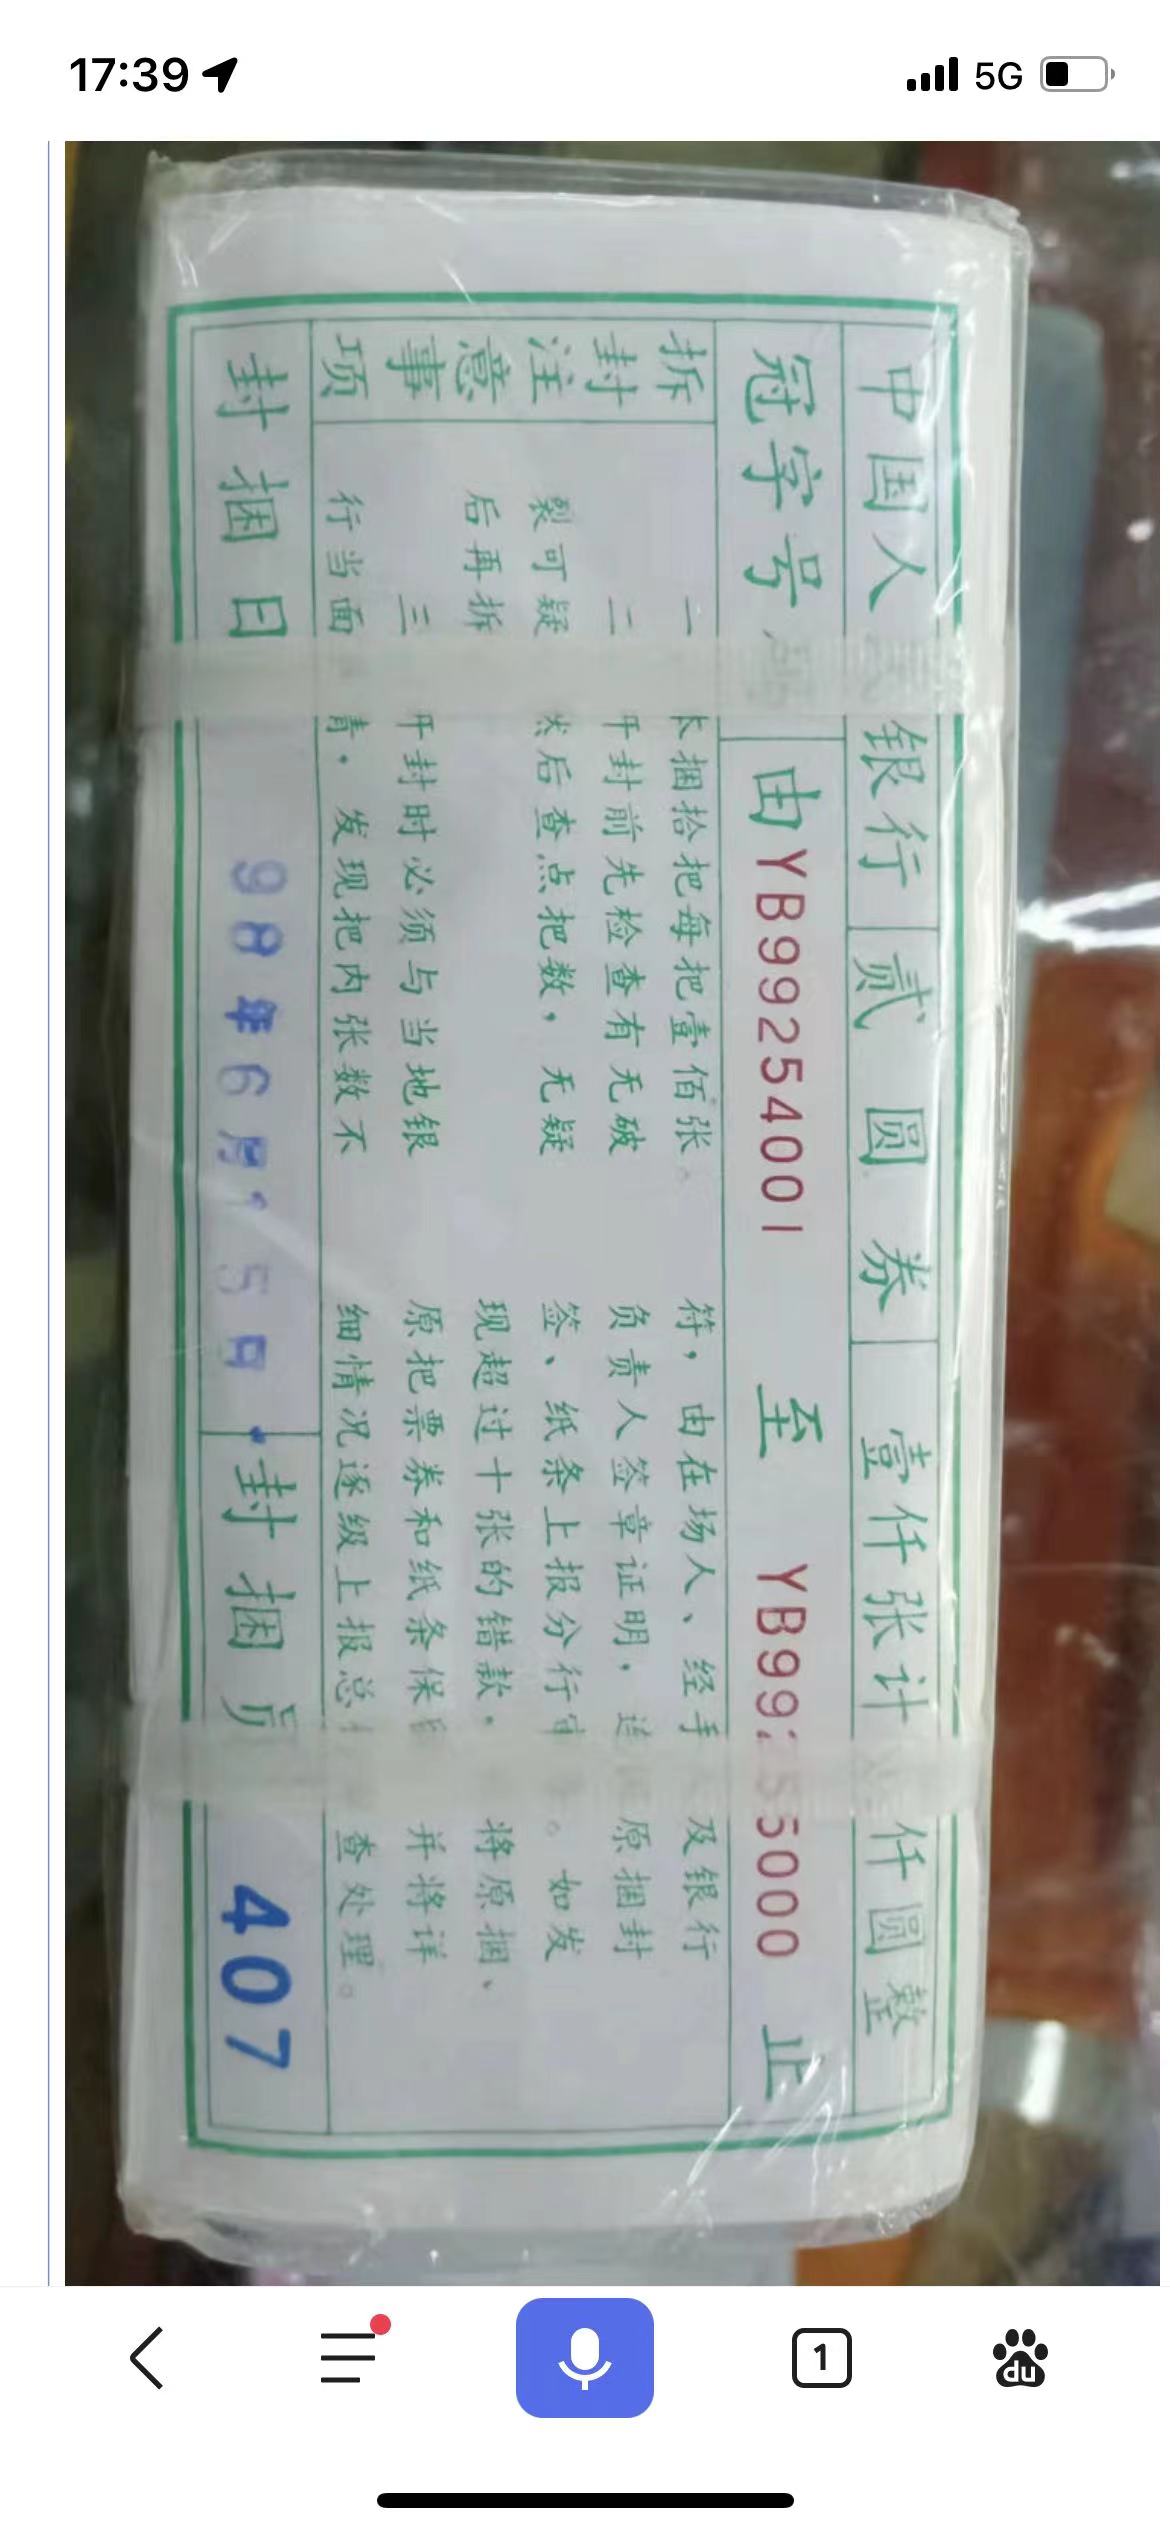 17:39
5G
中国人 银行 贰圆券 壹仟张计 仟圆整
冠字号 由YB99254001 至 YB99 5000 止
拆封注意事项
一 捆拾把每把壹佰张。
二 封前先检查有无破
裂可疑 后查点把数，无疑
后再拆
三 封时必须与当地银
行当面 ，发现把内张数不
符，由在场人、经手 及银行
负责人签章证明，连 原捆封
签、纸条上报分行 。如发
现超过十张的错款， 将原捆、
原把票券和纸条保 并将详
细情况逐级上报总 查处理。
封捆日 98年6月15日 封捆员 407
1
du